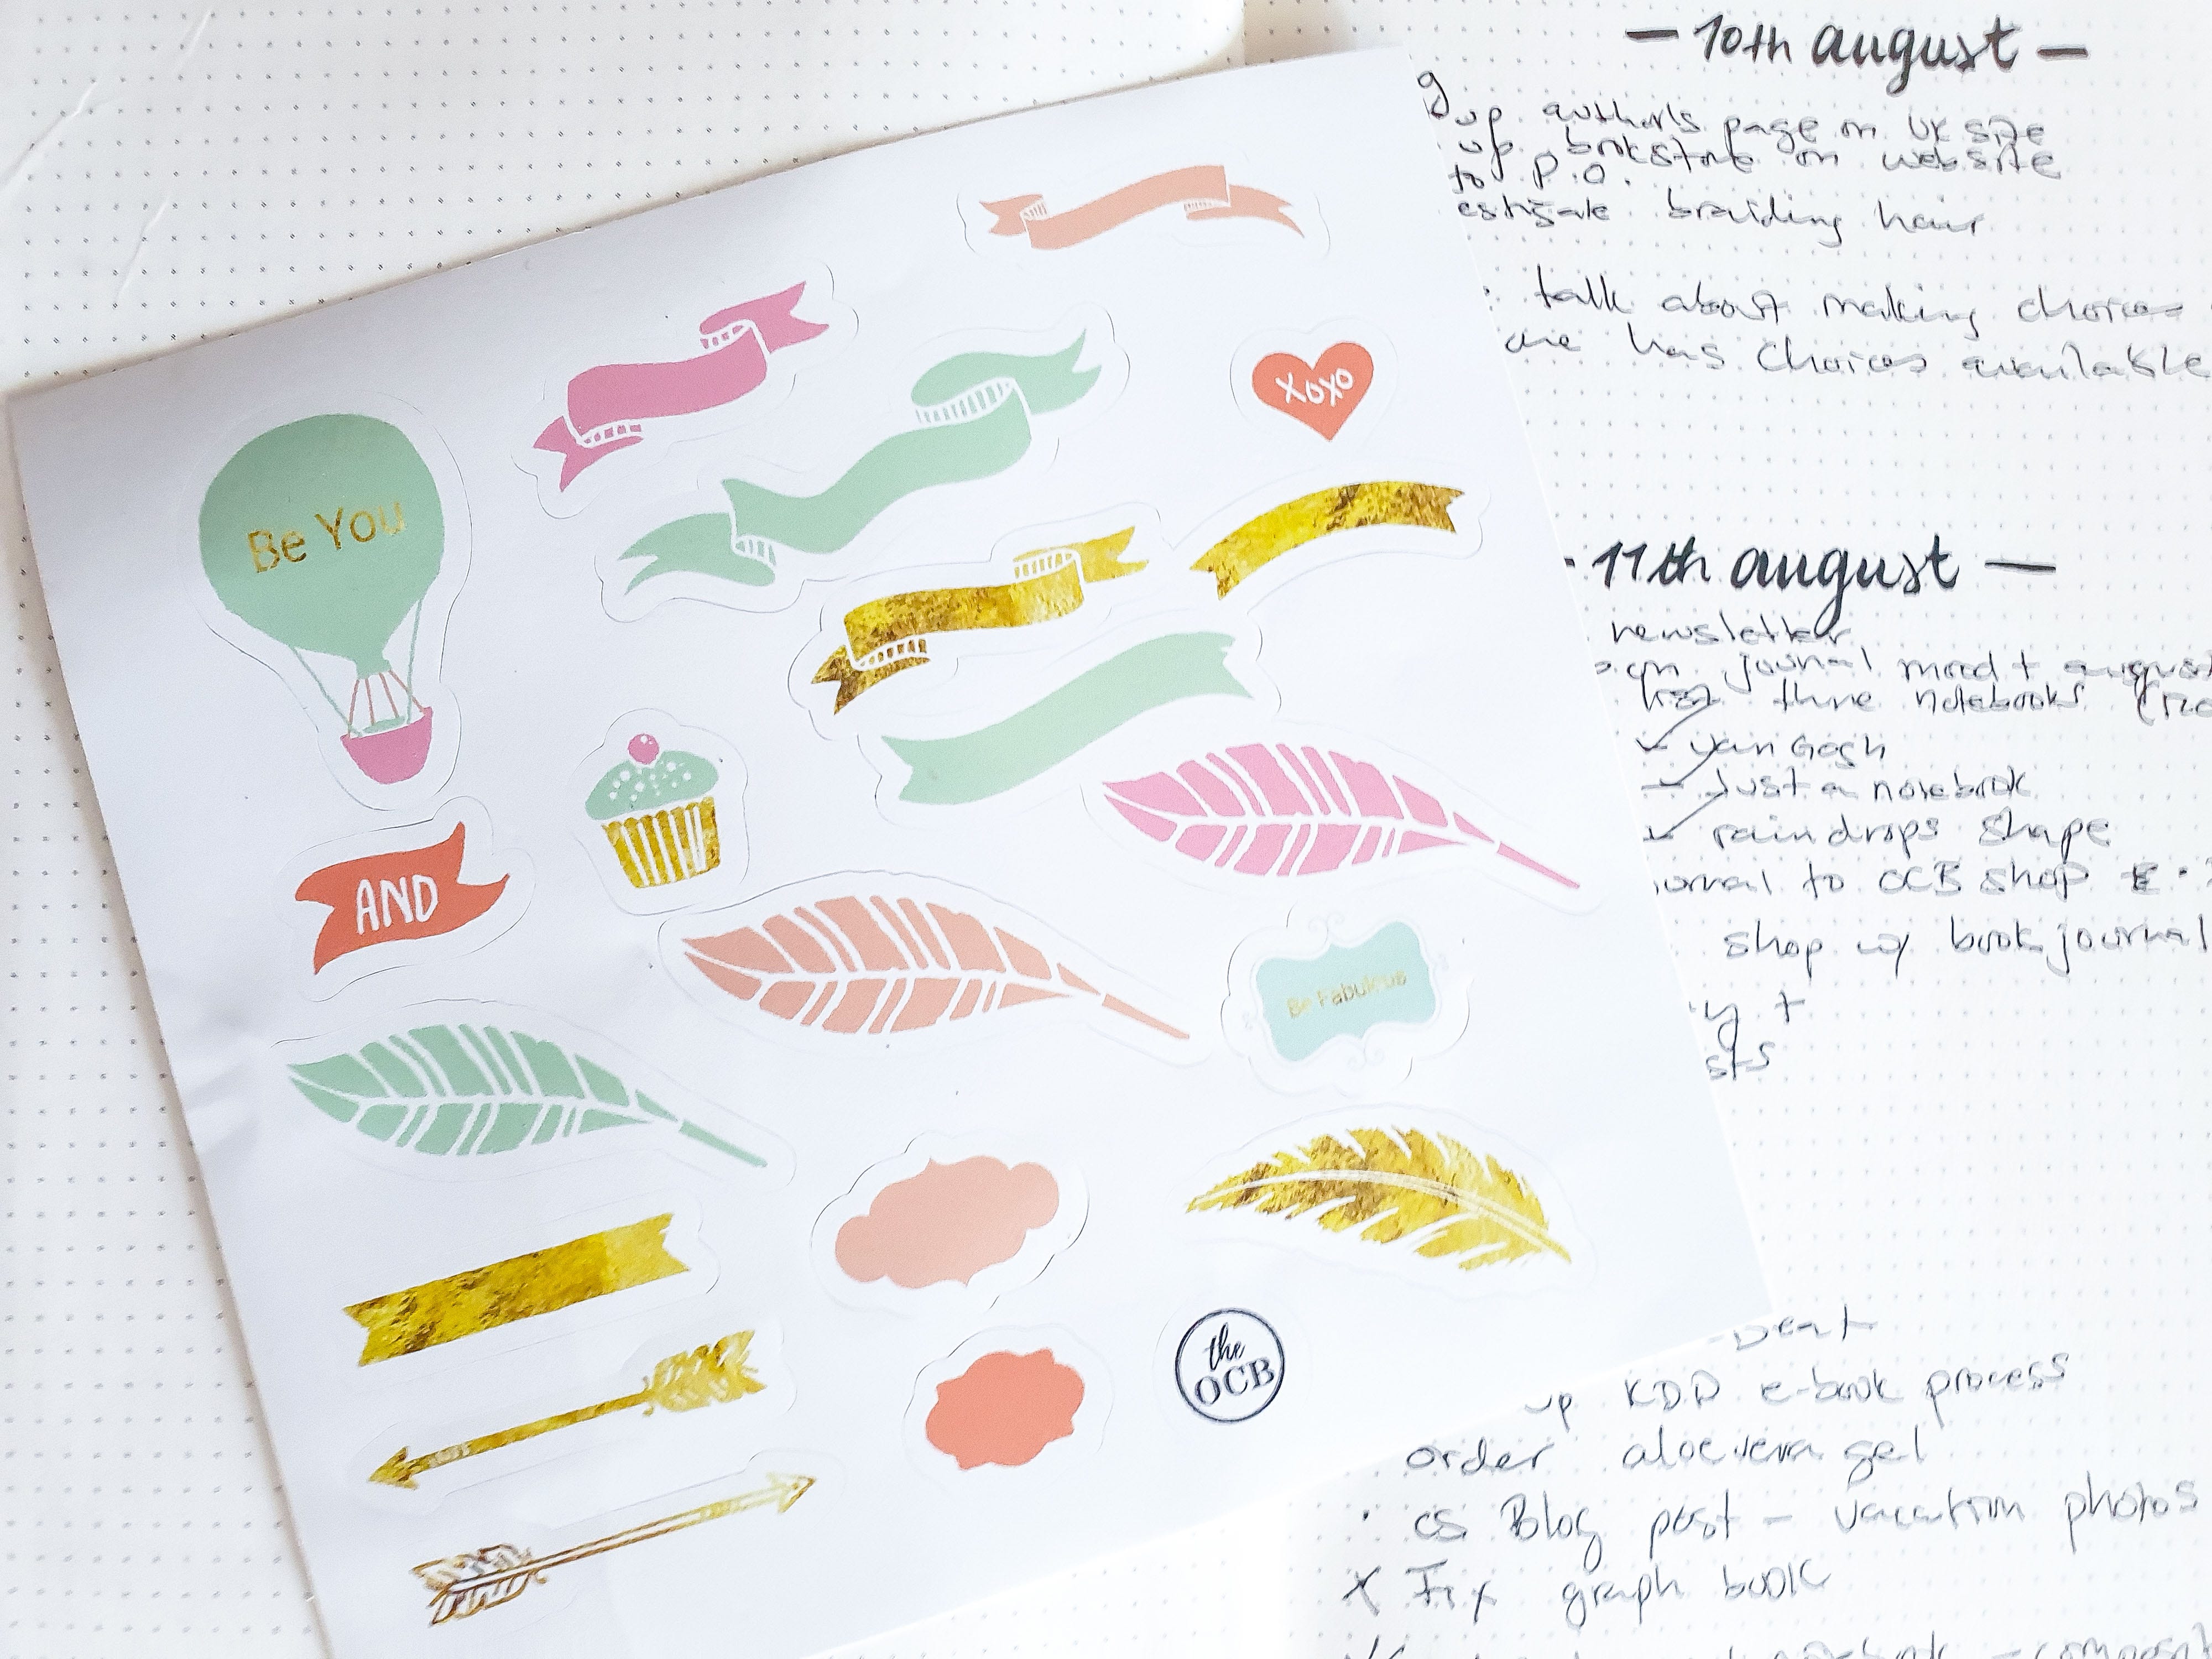 XOXO
Be You
AND
Be Fabulous
the
OCB
— 10th august —
up author's page on UK site
up bookstore on website
to P.O.
braiding hair
talk about making choices
one has choices available
11th august —
newsletter
journal mood + august
three notebooks
van Gogh
Just a notebook
raindrops shape
to OCB shop
shop w/ book journal
up KDP e-book process
order aloe vera gel
Blog post - vacation photos
x Fix graph book